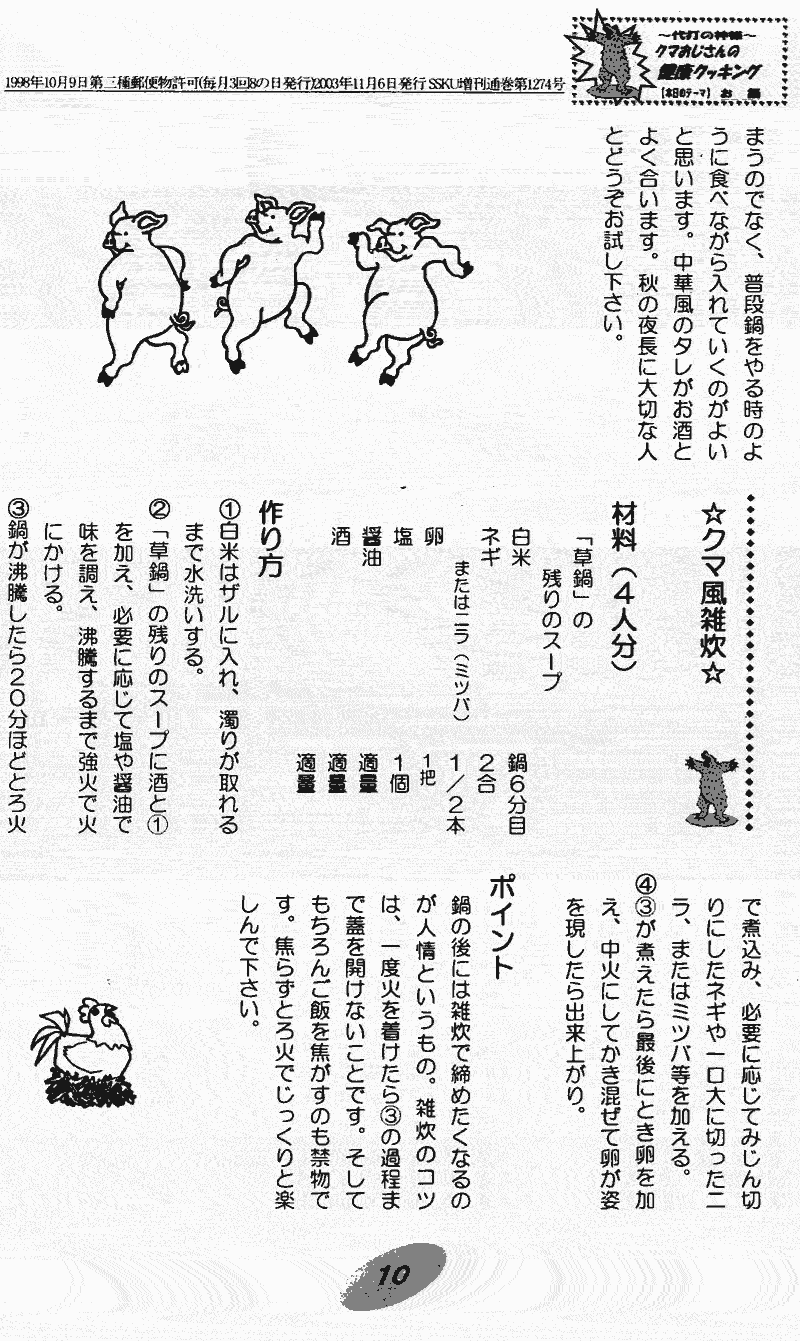 1998年10月9日第三種郵便物許可(毎月3回8の日発行)2003年11月6日発行 SSKU増刊通巻第1274号
～代打の神様～
クマおじさんの
健康クッキング
【本日のテーマ】 お 鍋
まうのでなく、普段鍋をやる時のよ
うに食べながら入れていくのがよい
と思います。中華風のタレがお酒と
よく合います。秋の夜長に大切な人
とどうぞお試し下さい。
☆クマ風雑炊☆
材料（４人分）
「草鍋」の
残りのスープ 鍋６分目
白米 ２合
ネギ １／２本
またはニラ（ミツバ） １把
卵 １個
塩 適量
醤油 適量
酒 適量
作り方
①白米はザルに入れ、濁りが取れる
まで水洗いする。
②「草鍋」の残りのスープに酒と①
を加え、必要に応じて塩や醤油で
味を調え、沸騰するまで強火で火
にかける。
③鍋が沸騰したら２０分ほどとろ火
で煮込み、必要に応じてみじん切
りにしたネギや一口大に切ったニ
ラ、またはミツバ等を加える。
④③が煮えたら最後にとき卵を加
え、中火にしてかき混ぜて卵が姿
を現したら出来上がり。
ポイント
鍋の後には雑炊で締めたくなるの
が人情というもの。雑炊のコツ
は、一度火を着けたら③の過程ま
で蓋を開けないことです。そして
もちろんご飯を焦がすのも禁物で
す。焦らずとろ火でじっくりと楽
しんで下さい。
10